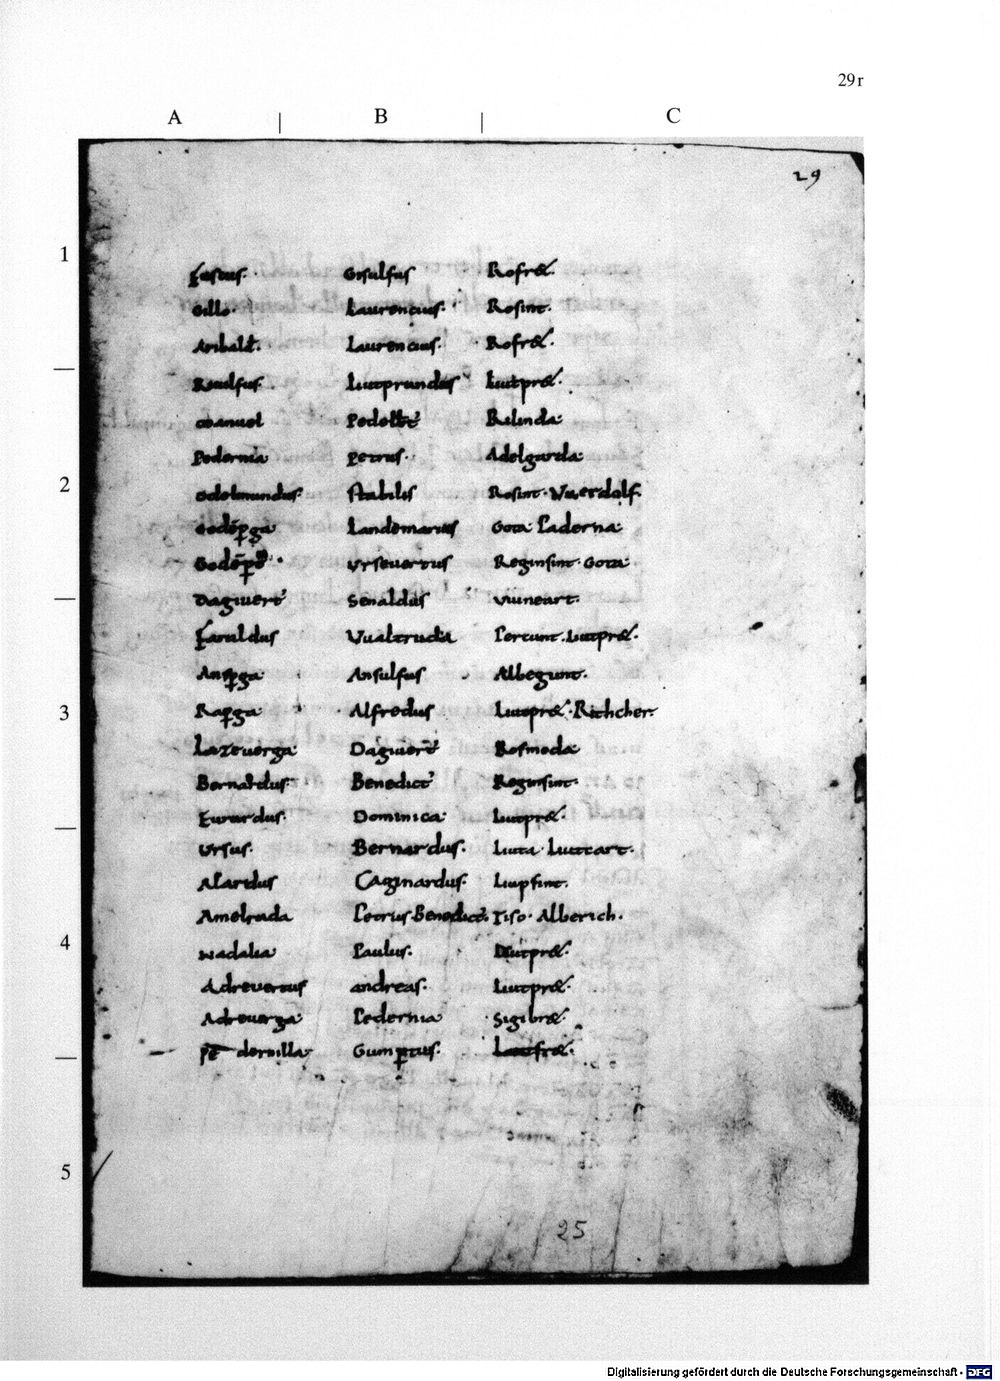 29r
A | B | C
29
1
Festus. Gisulfus Rofr&.
Gillo. Laurencius. Rosint.
Aribald. Laurencius. Rofr&.
Raulfus. Liutprandus Liutpr&.
manuel Pedelbt̄ Rilinda.
Pedernia petrus. Adelgarda.
2
odelmundus. stabilis Rosint. Vuerdolf.
Godep̄ga Landemarius Gota Paderna.
Godep̄t Ursevertus Reginsint. Gota.
Dagivert̄ Senaldus Vuineart.
Faraldus Vualtruda Pertunt. Liutpr&.
Ansp̄ga Ansulfus Albegunt.
3
Rap̄ga Alfredus Liutpr&. Richcher.
Lazeverga Dagivert̄ Rosmoda
Bernardus. Benedict̄ Reginsint.
Evrardus. Dominica Liutpr&.
Ursus. Bernardus. Liuta Liuteart.
Alardus Caginardus. Liupsint.
Amelrada Petrus Benedict̄. Tiso. Alberich.
4
wadalia Paulus. Liutpr&.
Adrevertus andreas. Liutpr&.
Adreverga Pedernia Sigibr&.
pe dernilla Gump̄tus. Lantfr&.
5
25
Digitalisierung gefördert durch die Deutsche Forschungsgemeinschaft - DFG